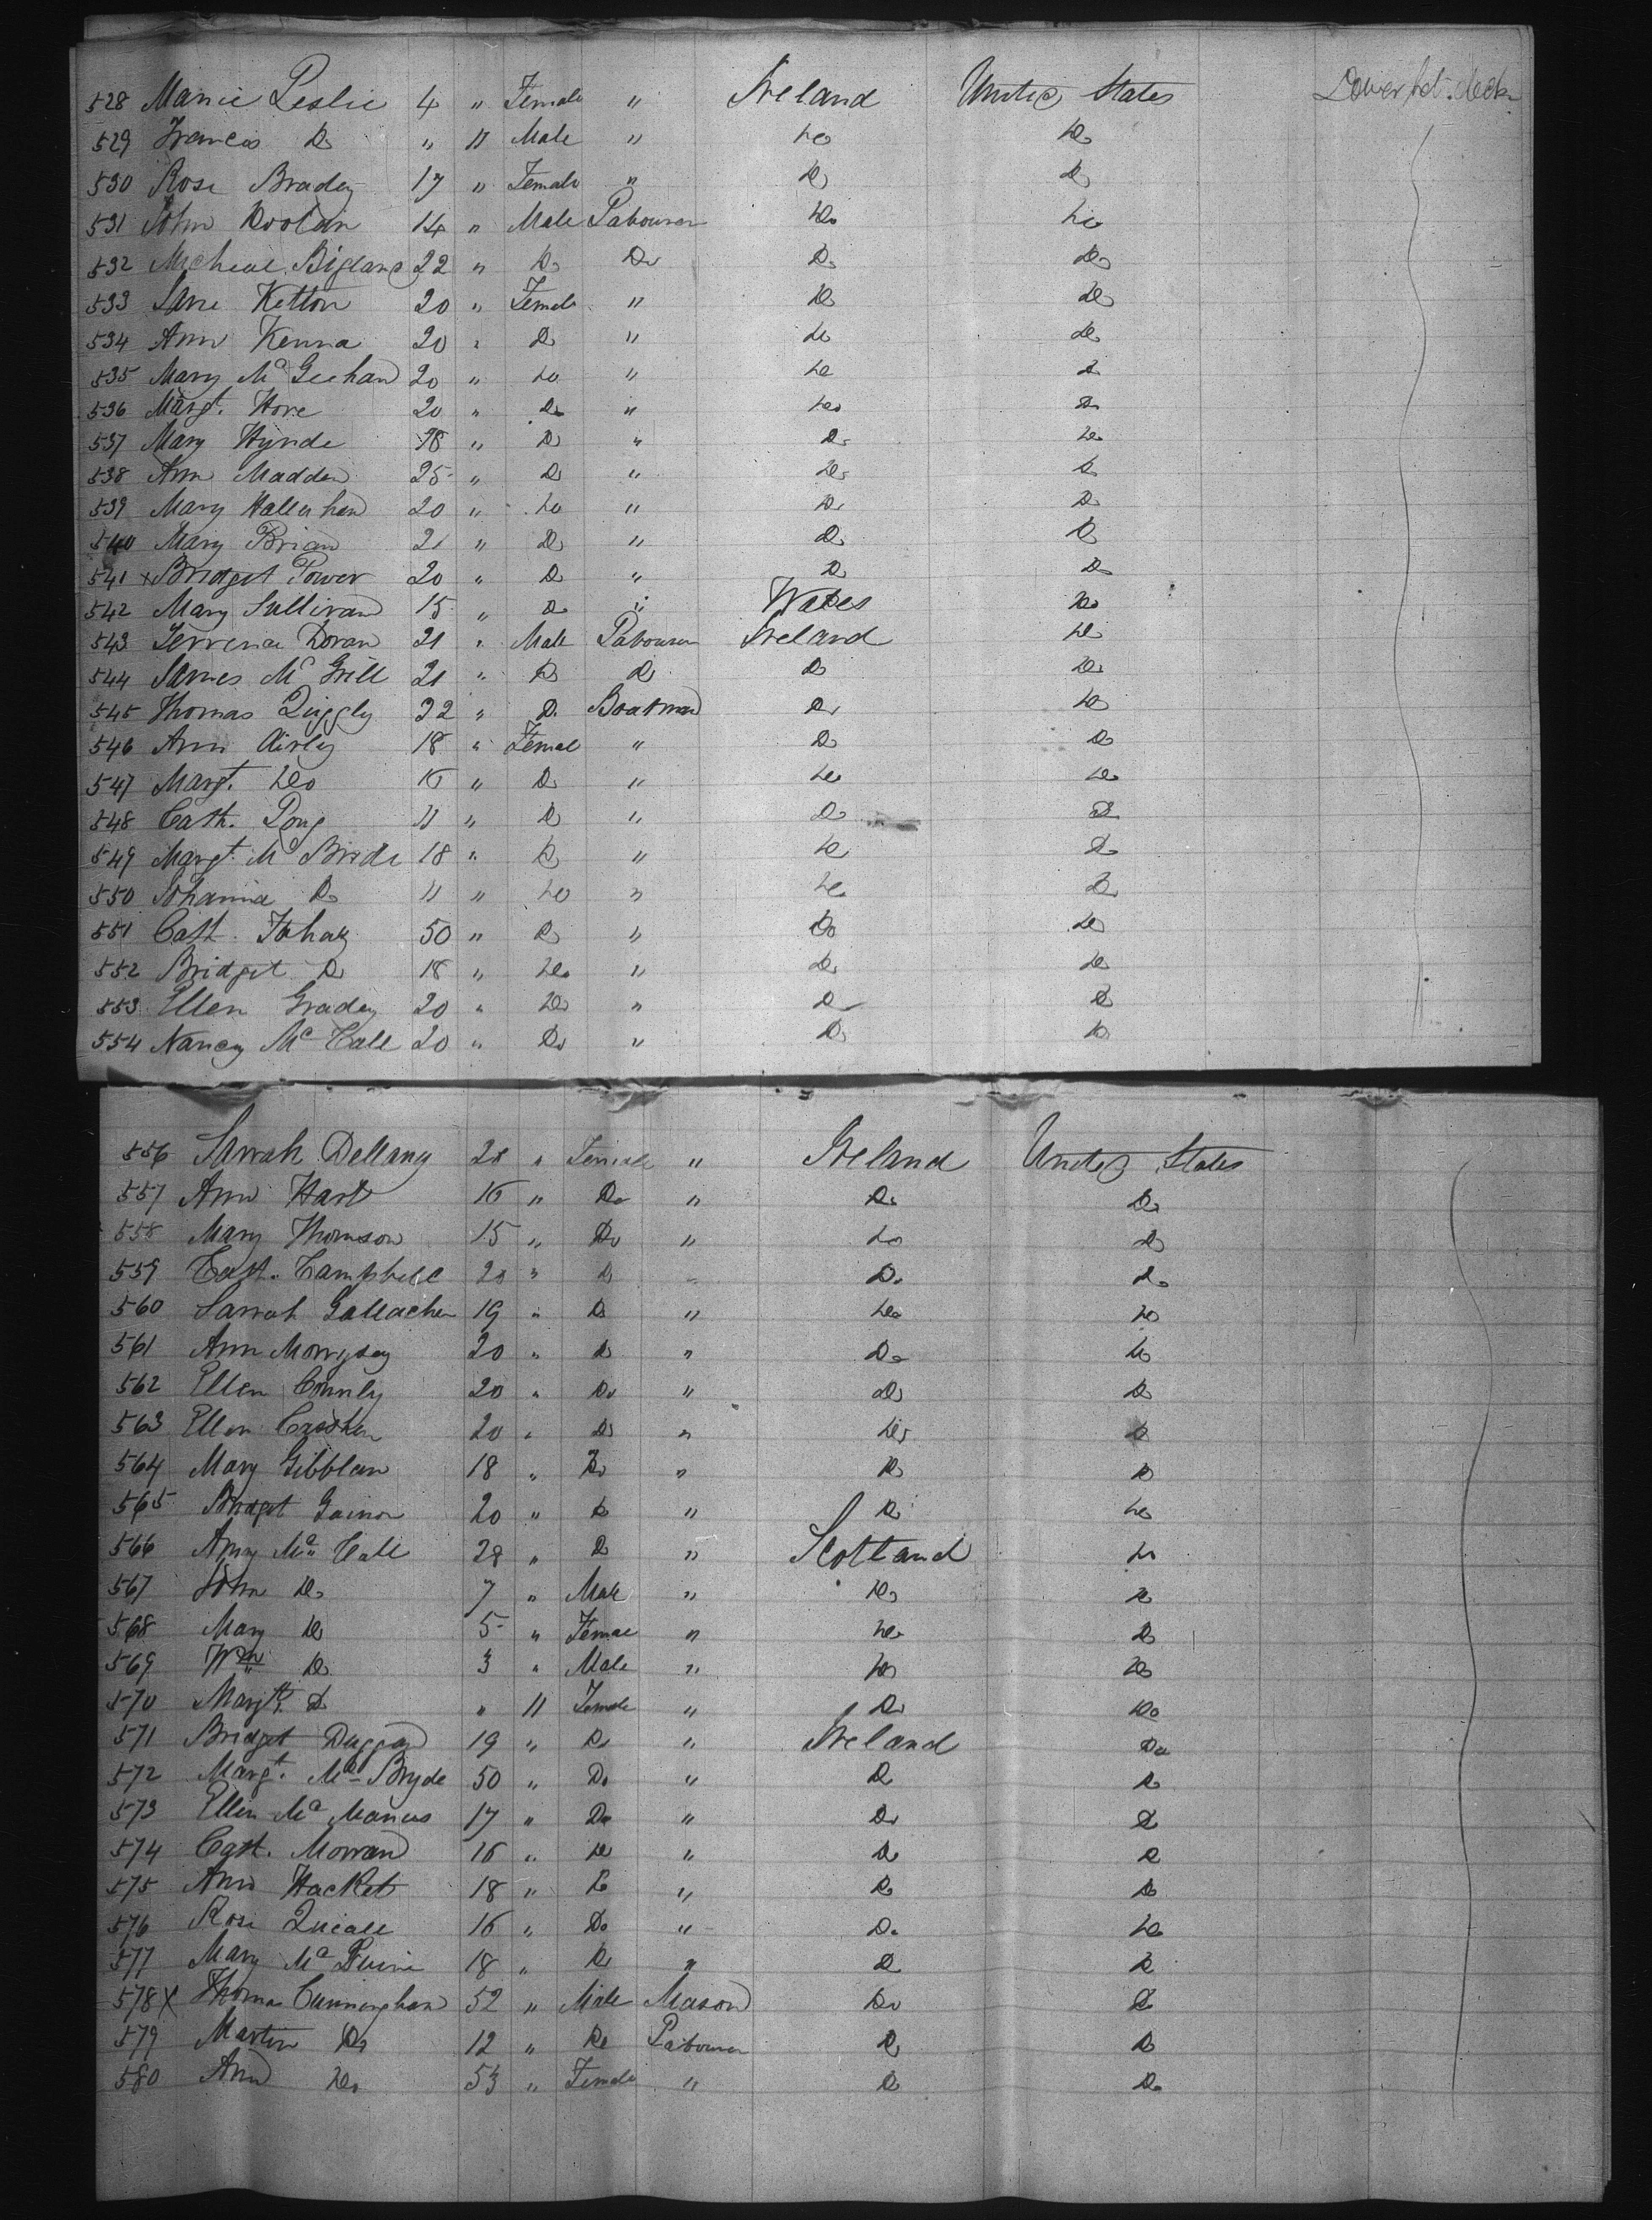 528 Marie Leslie 4 " Female " Ireland United States Lower bet. decks
529 Francis Do " 11 Male " Do Do
530 Rose Bradey 17 " Female " Do Do
531 John Doolan 14 " Male Labourer Do Do
532 Micheal 22 " Do Do Do Do
533 Jane Ketton 20 " Female " Do Do
534 Ann Kenna 20 " Do " Do Do
535 Mary Mc Geehan 20 " Do " Do Do
536 Margt. Hore 20 " Do " Do Do
537 Mary Hynde 18 " Do " Do Do
538 Ann Madden 25 " Do " Do Do
539 Mary Hallerhan 20 " Do " Do Do
540 Mary Brian 21 " Do " Do Do
541 x Bridget Power 20 " Do " Do Do
542 Mary Sullivan 15 " Do " Wales Do
543 Terrence Doran 21 " Male Labourer Ireland Do
544 James Mc Grill 21 " Do Do Do Do
545 Thomas Quggly 22 " Do Boatman Do Do
546 Ann Airly 18 " Female " Do Do
547 Margt. Do 16 " Do " Do Do
548 Cath. Long 11 " Do " Do Do
549 Margt. Mc Bride 18 " Do " Do Do
550 Johanna Do 11 " Do " Do Do
551 Cath. Fahay 50 " Do " Do Do
552 Bridget Do 18 " Do " Do Do
553 Ellen Gradey 20 " Do " Do Do
554 Nancy Mc Call 20 " Do " Do Do
556 Sarrah Dellany 28 " Female " Ireland United States
557 Ann Hart 16 " Do " Do Do
558 Mary Thomson 15 " Do " Do Do
559 Cath. Campbell 20 " Do " Do Do
560 Sarrah Gallacher 19 " Do " Do Do
561 Ann Morrysey 20 " Do " Do Do
562 Ellen Connly 20 " Do " Do Do
563 Ellen 20 " Do " Do Do
564 Mary Gibblan 18 " Do " Do Do
565 Bridget Gainor 20 " Do " Do Do
566 Amy Mc Call 28 " Do " Scotland Do
567 John Do 7 " Male " Do Do
568 Mary Do 5 " Female " Do Do
569 Wm Do 3 " Male " Do Do
570 Margt. Do " 11 Female " Do Do
571 Bridget Duggan 19 " Do " Ireland Do
572 Margt. Mc Bryde 50 " Do " Do Do
573 Ellen Mc Manus 17 " Do " Do Do
574 Cath. Morran 16 " Do " Do Do
575 Ann Hacket 18 " Do " Do Do
576 Rose Quiall 16 " Do " Do Do
577 Mary Mc 18 " Do " Do Do
578 x Thomas Cunningham 52 " Male Mason Do Do
579 Martin Do 12 " Do Labourer Do Do
580 Ann Do 53 " Female " Do Do